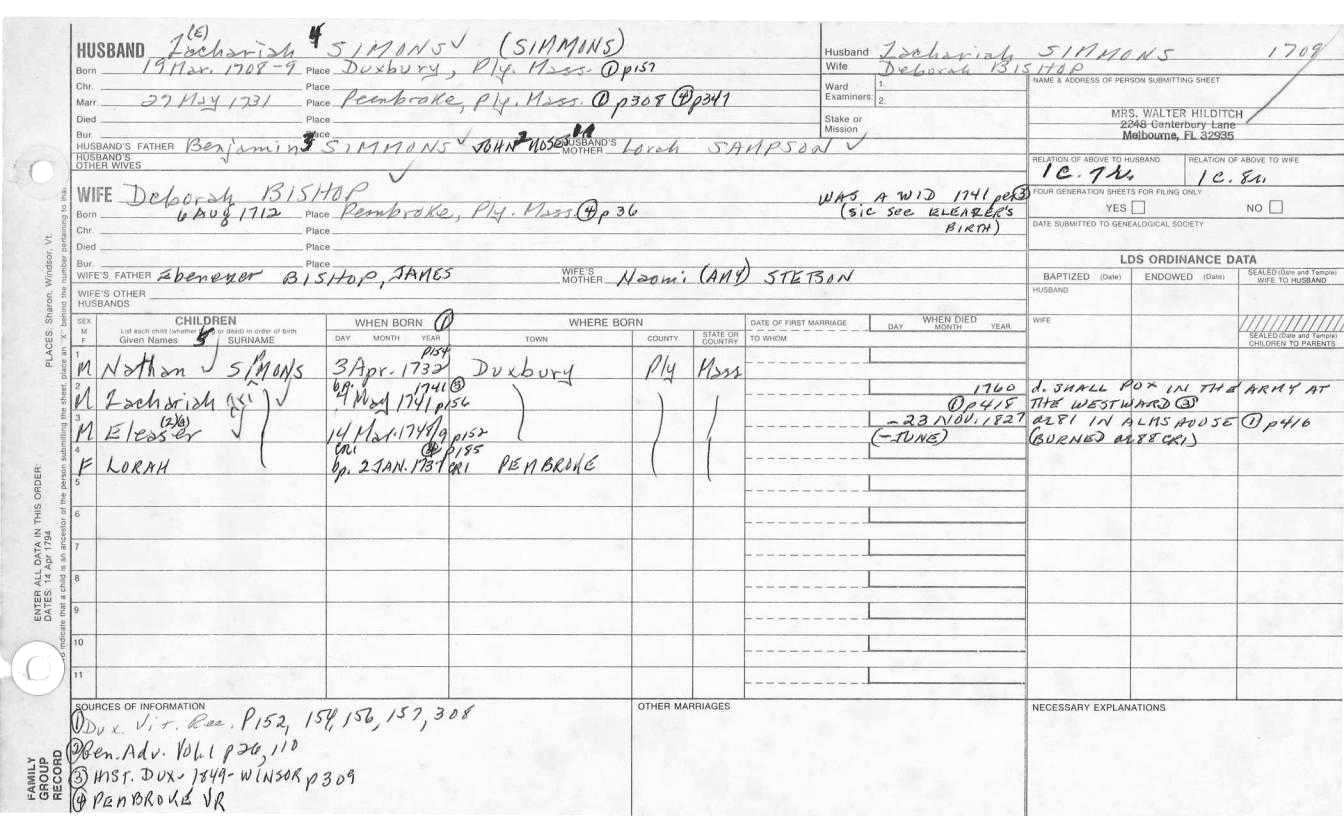 HUSBAND Zachariah (E) 4 SIMONS ✓ (SIMMONS)
Born 19 Mar. 1708-9 Place Duxbury, Ply. Mass. ① p157
Chr. Place
Marr. 27 May 1731 Place Pembroke, Ply. Mass. ① p308 ④ p347
Died Place
Bur. Place
HUSBAND'S FATHER Benjamin 3 SIMMONS ✓ JOHN 2 MOSES 1 HUSBAND'S MOTHER Lorah SAMPSON ✓
HUSBAND'S OTHER WIVES
Husband Zachariah SIMMONS 1709
Wife Deborah BISHOP
Ward Examiners: 1. 2.
Stake or Mission
NAME & ADDRESS OF PERSON SUBMITTING SHEET
MRS. WALTER HILDITCH
2248 Canterbury Lane
Melbourne, FL 32935
RELATION OF ABOVE TO HUSBAND RELATION OF ABOVE TO WIFE
1C. 7r. 1C. 8r.
FOUR GENERATION SHEETS FOR FILING ONLY
YES NO
DATE SUBMITTED TO GENEALOGICAL SOCIETY
WIFE Deborah BISHOP ✓
WAS A WID 1741 per ③
(sic see ELEAZER'S
BIRTH)
Born 6 AUG 1712 Place Pembroke, Ply. Mass. ④ p 36
Chr. Place
Died Place
Bur. Place
WIFE'S FATHER Ebenezer BISHOP, JAMES WIFE'S MOTHER Naomi (AMY) STETSON
WIFE'S OTHER HUSBANDS
LDS ORDINANCE DATA
BAPTIZED (Date) ENDOWED (Date) SEALED (Date and Temple) WIFE TO HUSBAND
HUSBAND
WIFE
SEALED (Date and Temple) CHILDREN TO PARENTS
SEX M F CHILDREN List each child (whether or dead) in order of birth Given Names 5 SURNAME
WHEN BORN ① DAY MONTH YEAR
WHERE BORN TOWN COUNTY STATE OR COUNTRY
DATE OF FIRST MARRIAGE TO WHOM
WHEN DIED DAY MONTH YEAR
1 M Nathan ✓ SIMONS 3 Apr. 1732 p154 Duxbury Ply Mass
2 M Zachariah ✓ bp. 1741 ③ 4 May 1741 p156 1760 ① p418 d. SMALL POX IN THE ARMY AT THE WESTWARD ③
3 M Eleaser ✓ 14 Mar. 1748/9 p152 - 23 NOV. 1827 (-JUNE) æ 81 IN ALMSHOUSE ① p416 (BURNED æ 88 CR1)
4 F LORAH CR1 ④ p185 bp. 2 JAN. 1737 CR1 PEMBROKE
5
6
7
8
9
10
11
SOURCES OF INFORMATION
① Dux. Vit. Rec. P152, 154, 156, 157, 308
② Gen. Adv. Vol. 1 p26, 110
③ HIST. DUX - 1849 - WINSOR p309
④ PEMBROKE VR
OTHER MARRIAGES
NECESSARY EXPLANATIONS
PLACES: Sharon, Windsor, Vt.
ENTER ALL DATA IN THIS ORDER:
DATES: 14 Apr 1794
indicate that a child is an ancestor of the person submitting the sheet, place an "X" behind the number pertaining to
FAMILY GROUP RECORD